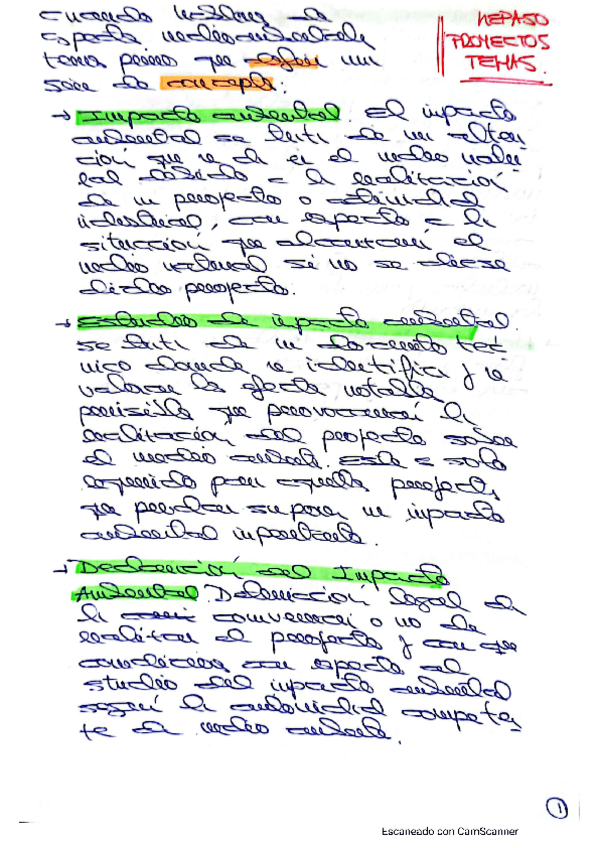 cuando hablamos de
aspectos medioambientales
tenemos primero que definir una
serie de conceptos:
REPASO
PROYECTOS
TEMAS.
→ Impacto ambiental. El impacto
ambiental se trata de una altera
ción que se da en el medio natu
ral debido a la realización
de un proyecto o actividad
industrial, con respecto a la
situación que alcanzaría el
medio natural si no se diese
dicho proyecto.
→ Estudio de impacto ambiental.
se trata de un documento téc
nico donde se identifica y se
valoran los efectos notables
previsibles que provocará la
realización del proyecto sobre
el medio ambiente. Este es solo
requerido para aquellos proyectos,
que puedan suponer un impacto
ambiental importante.
→ Declaración del Impacto
Ambiental. Delimitación legal de
la conveniencia o no de
realizar el proyecto y con que
condiciones con respecto al
estudio del impacto ambiental
según la autoridad competen
te de medio ambiente.
1
Escaneado con CamScanner